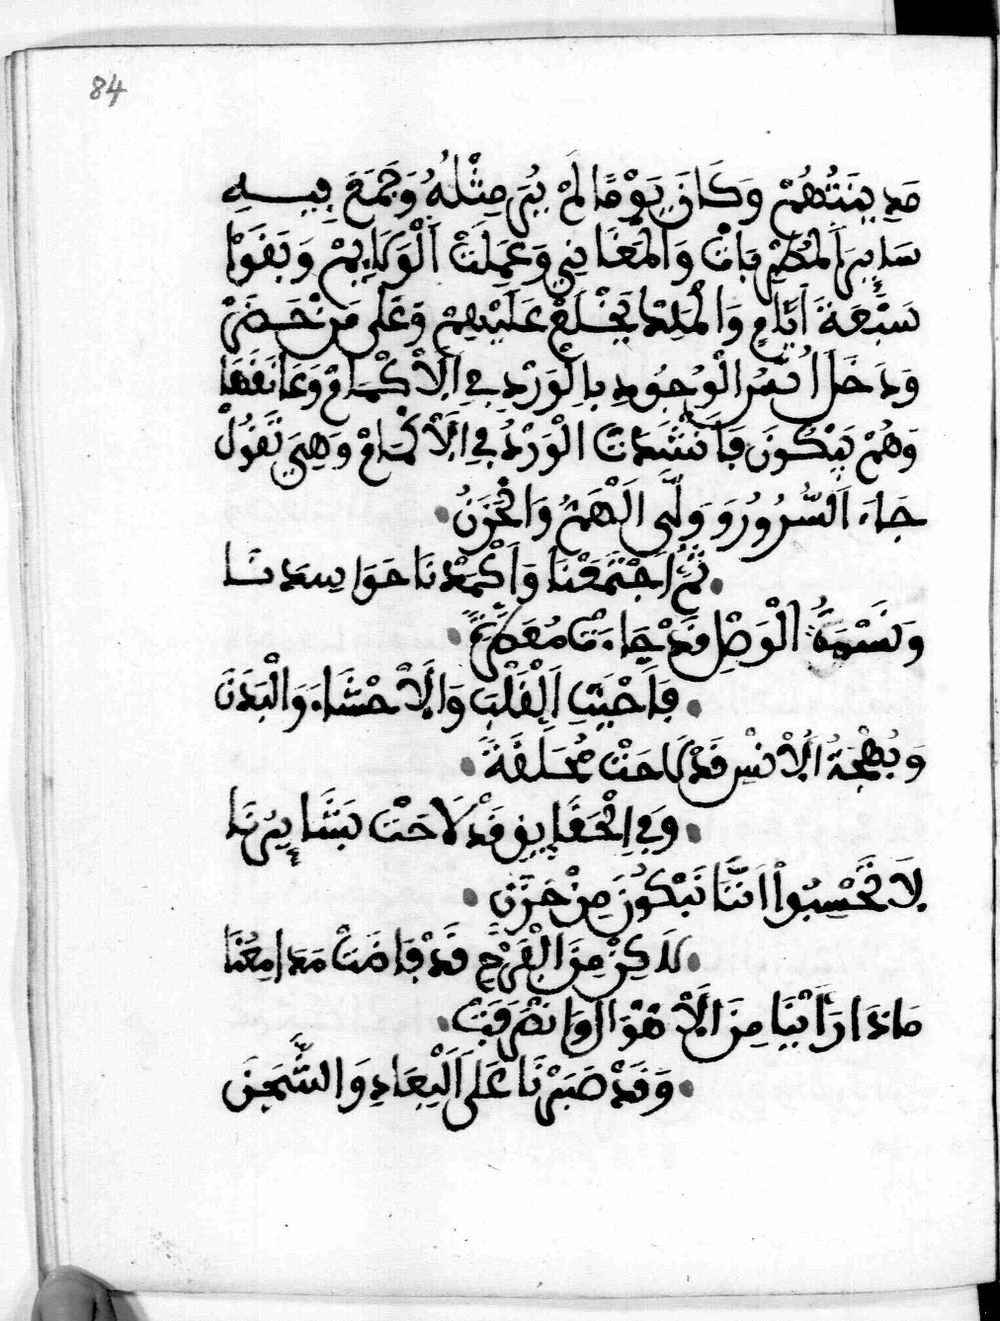 84
مَدِينَتُهُمْ وَكَانَ يَوْمًا لَمْ يُرَ مِثْلُهُ وَجَمَعَ فِيهِ
سَايِرَ الْمُطْرِبَاتْ وَالْمَغَانِي وَعَمِلَتْ الْوَلَايِمْ وَبَقَوْا
سَبْعَةَ أَيَّامٍ وَالْمَلِكْ يَخْلَعْ عَلَيْهِمْ وَعَلَى مَنْ حَضَرْ
وَدَخَلَ أُنْسُ الْوُجُودِ بِالْوَرْدِ فِي الْأَكْمَامْ وَعَانَقَهَا
وَهُمْ يَبْكُونَ فَأَنْشَدَتْ الْوَرْدُ فِي الْأَكْمَامْ وَهِيَ تَقُولْ
جَاءَ السُّرُورُ وَوَلَّى الْهَمُّ وَالْحَزَنُ
ثُمَّ اجْتَمَعْنَا وَأَكْمَدْنَا حَوَاسِدَنَا
وَنَسْمَةُ الْوَصْلِ قَدْ جَاءَتْ مُعَطَّرَةً
فَأَحْيَتِ الْقَلْبَ وَالْأَحْشَاءَ وَالْبَدَنَ
وَبُهْجَةُ الْأُنْسِ قَدْ لَاحَتْ مُخَلَّقَةً
وَفِي الْخَفَايِقِ قَدْ لَاحَتْ بَشَايِرُنَا
لَا تَحْسِبُوا أَنَّنَا نَبْكُونَ مِنْ حَزَنٍ
لَاكِنْ مِنَ الْفَرَحِ قَدْ فَاضَتْ مَدَامِعُنَا
مَاذَا رَأَيْنَا مِنَ الْأَهْوَالْ وَانْصَرَفَتْ
وَقَدْ صَبَرْنَا عَلَى الْبِعَادِ وَالشَّجَنِ